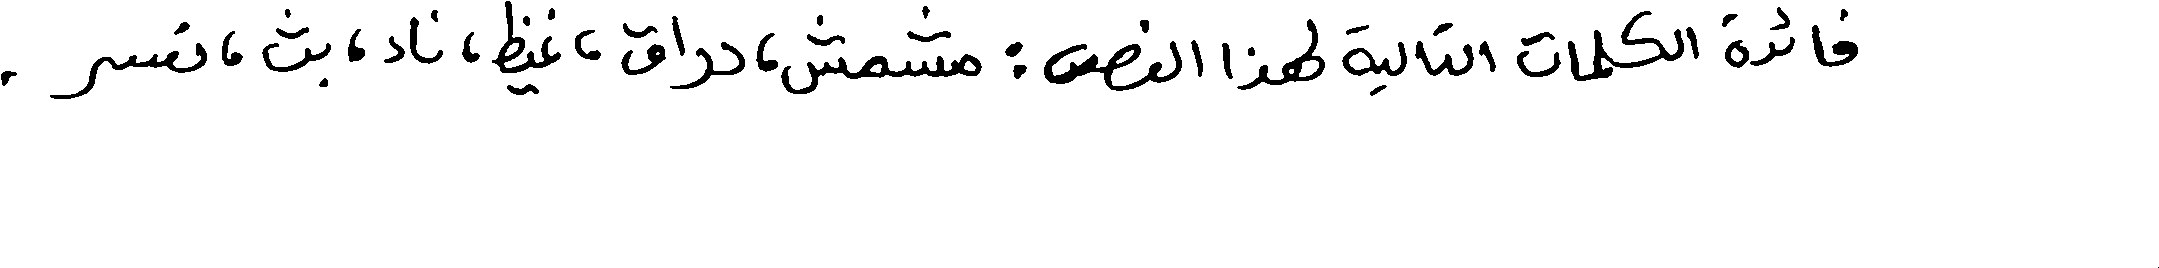 فائدة الكلمات التالية لهذا النص: مشمش، دراق، غيظ، ناد، بث، تفسر.